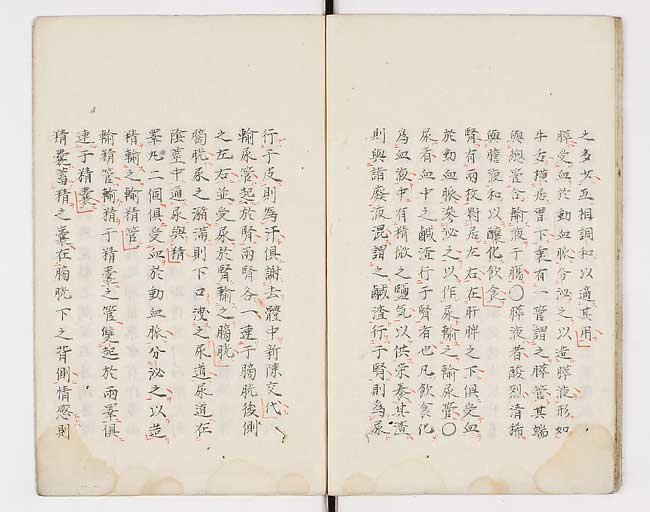 之多少互相調和以適其用
膵受血於動血脈分泌之以造膵液形如
牛舌横居胃下裏有一管謂之膵管其端
與總管合輸液于膓〇膵液者酸烈清稀
與膽液和以釀化飲食
腎有兩枚對居左右在肝脾之下俱受血
於動血脈滲泌之以作尿輸之輸尿管〇
尿者血中之鹹渣行于腎者也凡飲食化
為血液中有精微之鹽氣以供栄養其渣
則與諸廢液混謂之鹹渣行于腎則為尿
行于皮則為汗俱謝去體中新陳交代
輸尿管起於腎兩腎各一連于膀胱後側
之左右並受尿於腎輸之膀胱
膀胱尿之瀦満則下口洩之尿道尿道在
陰莖中通尿與精
睪丸二個俱受血於動血脈分泌之以造
精輸之輸精管
輸精管輸精于精囊之管雙起於兩睪俱
連于精囊
精囊蓄精之囊在膀胱下之背側情感則